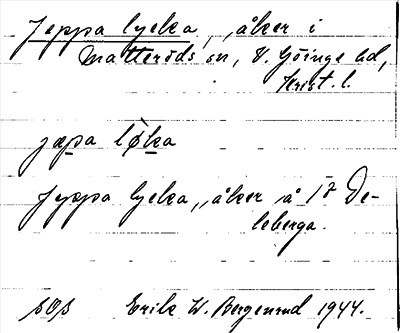 Jeppa lycka, åker i
Matteröds sn, V. Göinge hd,
Krist. l.
jæpa lø̀ka
Jeppa lycka, åker å 17 De-
leberga.
sOs Erik W. Bergenrud 1944.